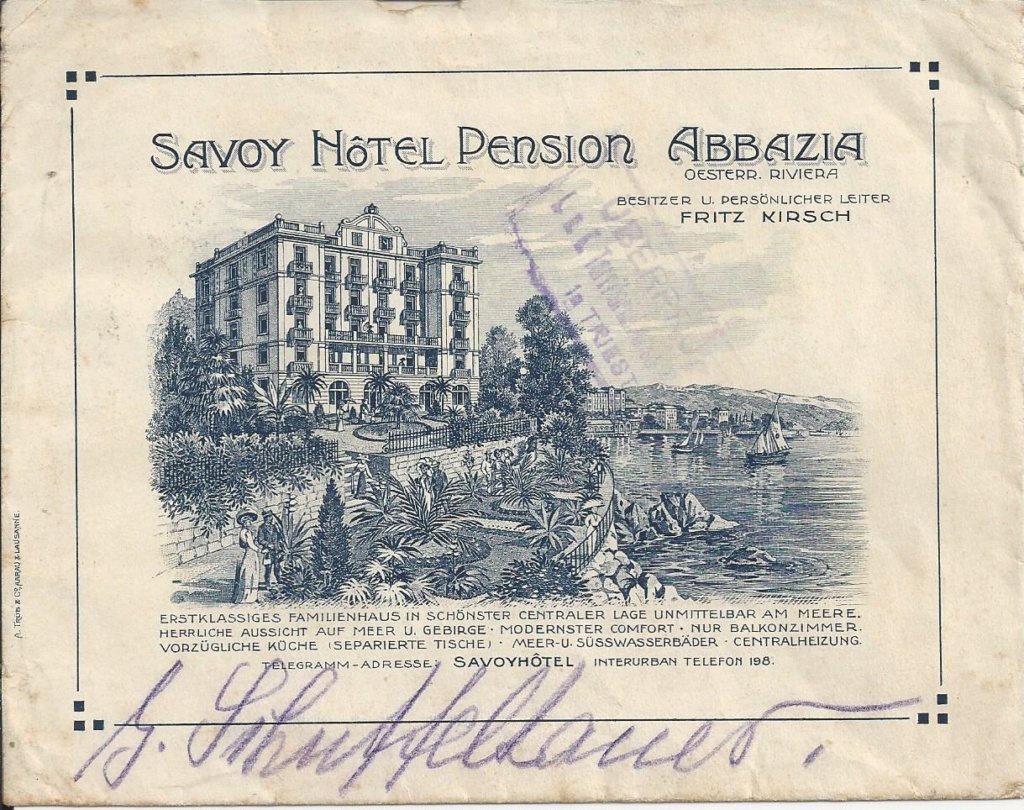 SAVOY HÔTEL PENSION ABBAZIA
OESTERR. RIVIERA
BESITZER U. PERSÖNLICHER LEITER
FRITZ KIRSCH
ÜBERPRÜ
in TRIEST
ERSTKLASSIGES FAMILIENHAUS IN SCHÖNSTER CENTRALER LAGE UNMITTELBAR AM MEERE.
HERRLICHE AUSSICHT AUF MEER U. GEBIRGE · MODERNSTER COMFORT · NUR BALKONZIMMER.
VORZÜGLICHE KÜCHE (SEPARIERTE TISCHE) · MEER-U. SÜSSWASSERBÄDER · CENTRALHEIZUNG.
TELEGRAMM-ADRESSE: SAVOYHÔTEL INTERURBAN TELEFON 198.
A. TRÜB & Cº, AARAU & LAUSANNE.